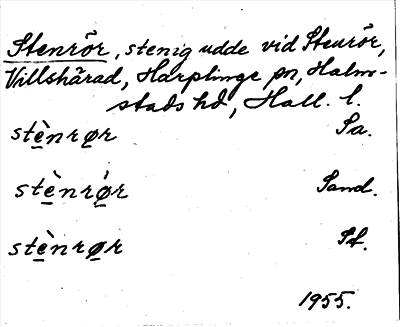 Stenrör, stenig udde vid Stenrör,
Villshärad, Harplinge sn, Halm-
stads hd, Hall. l.
stè̱nrø̱r Sa.
stè̱nrǿ̱r Sand.
stè̱nrø̱r Sf.
1955.